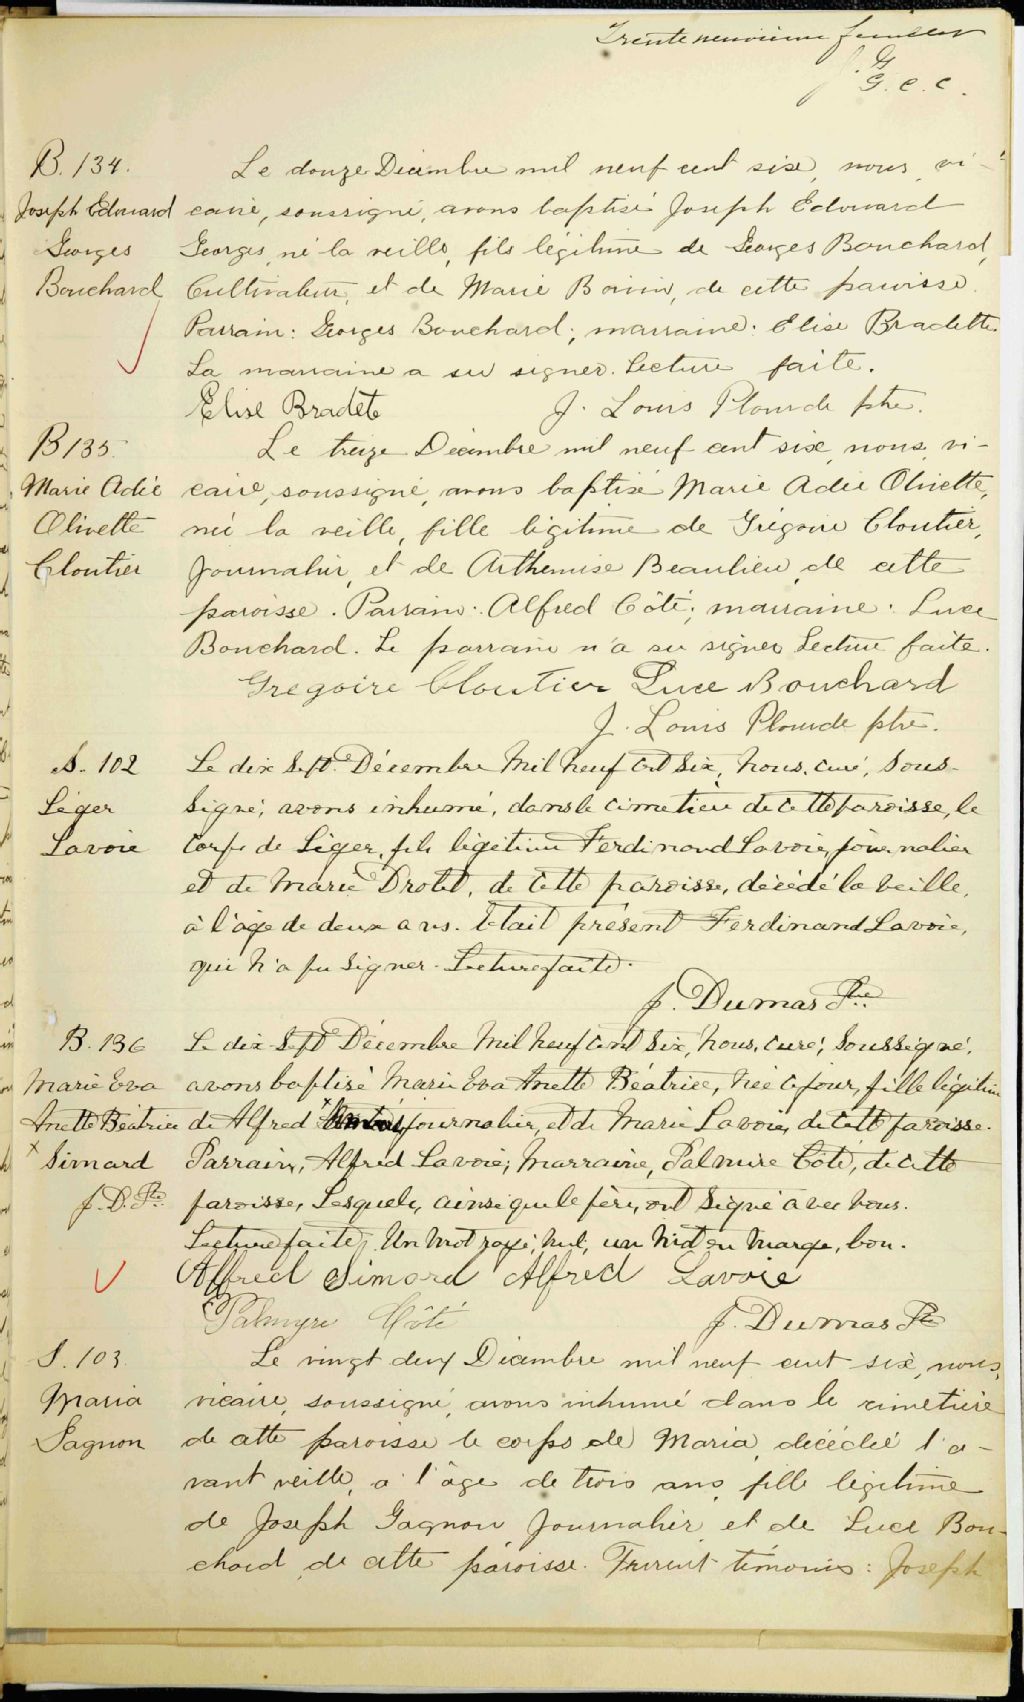 Trente neuvième feuillet
J. G.
G. C. C.
B. 134.
Joseph Edouard
Georges
Bouchard
Le douze Décembre mil neuf cent six, nous, vi-
caire, soussigné, avons baptisé Joseph Edouard
Georges, né la veille, fils légitime de Georges Bouchard,
Cultivateur, et de Marie Boivin, de cette paroisse.
Parrain: Georges Bouchard; marraine: Elise Bradette
La marraine a su signer. Lecture faite.
Elise Bradete J. Louis Plourde ptre.
B 135.
Marie Adée
Olivette
Cloutier
Le treize Décembre mil neuf cent six, nous, vi-
caire, soussigné, avons baptisé Marie Adée Olivette,
née la veille, fille légitime de Grégoire Cloutier,
Journalier, et de Arthemise Beaulieu, de cette
paroisse. Parrain: Alfred Côté; marraine: Luce
Bouchard. Le parrain n'a su signer Lecture faite.
Gregoire Cloutier Luce Bouchard
J. Louis Plourde ptre.
S. 102
Léger
Lavoie
Le dix Sept Décembre Mil neuf Cent Six, Nous, curé, Sous-
Signé, avons inhumé, dans le cimetière de cette paroisse, le
Corps de Léger, fils légitime Ferdinand Lavoie, journalier
et de Marie Drolet, de Cette paroisse, décédé la veille,
à l'âge de deux ans. Etait présent Ferdinand Lavoie,
qui n'a pu Signer. Lecture faite.
J. Dumas Ptre.
B. 136
Marie Eva
Anette Béatrice
x Simard
J. D. Ptre
Le dix-Sept Décembre Mil Neuf Cent Six, Nous, Curé, Soussigné,
avons baptisé Marie Eva Anette Béatrice, Née ce jour, fille légitime
de Alfred x journalier, et de Marie Lavoie, de Cette paroisse.
Parrain, Alfred Lavoie; Marraine, Palmire Côté, de Cette
paroisse, Lesquels, ainsi que le père, ont Signé avec Nous.
Lecture faite, Un Mot rayé, Nul, un Mot en Marge, bon.
Alfred Simard Alfred Lavoie
Palmyre Côté J. Dumas Ptre
S. 103.
Maria
Gagnon
Le vingt deux Décembre mil neuf cent six, nous,
vicaire, soussigné, avons inhumé dans le cimetière
de cette paroisse le corps de Maria, décédée l'a-
vant veille, a l'âge de trois ans, fille légitime
de Joseph Gagnon Journalier et de Luce Bou-
chard, de cette paroisse. Furent témoins: Joseph